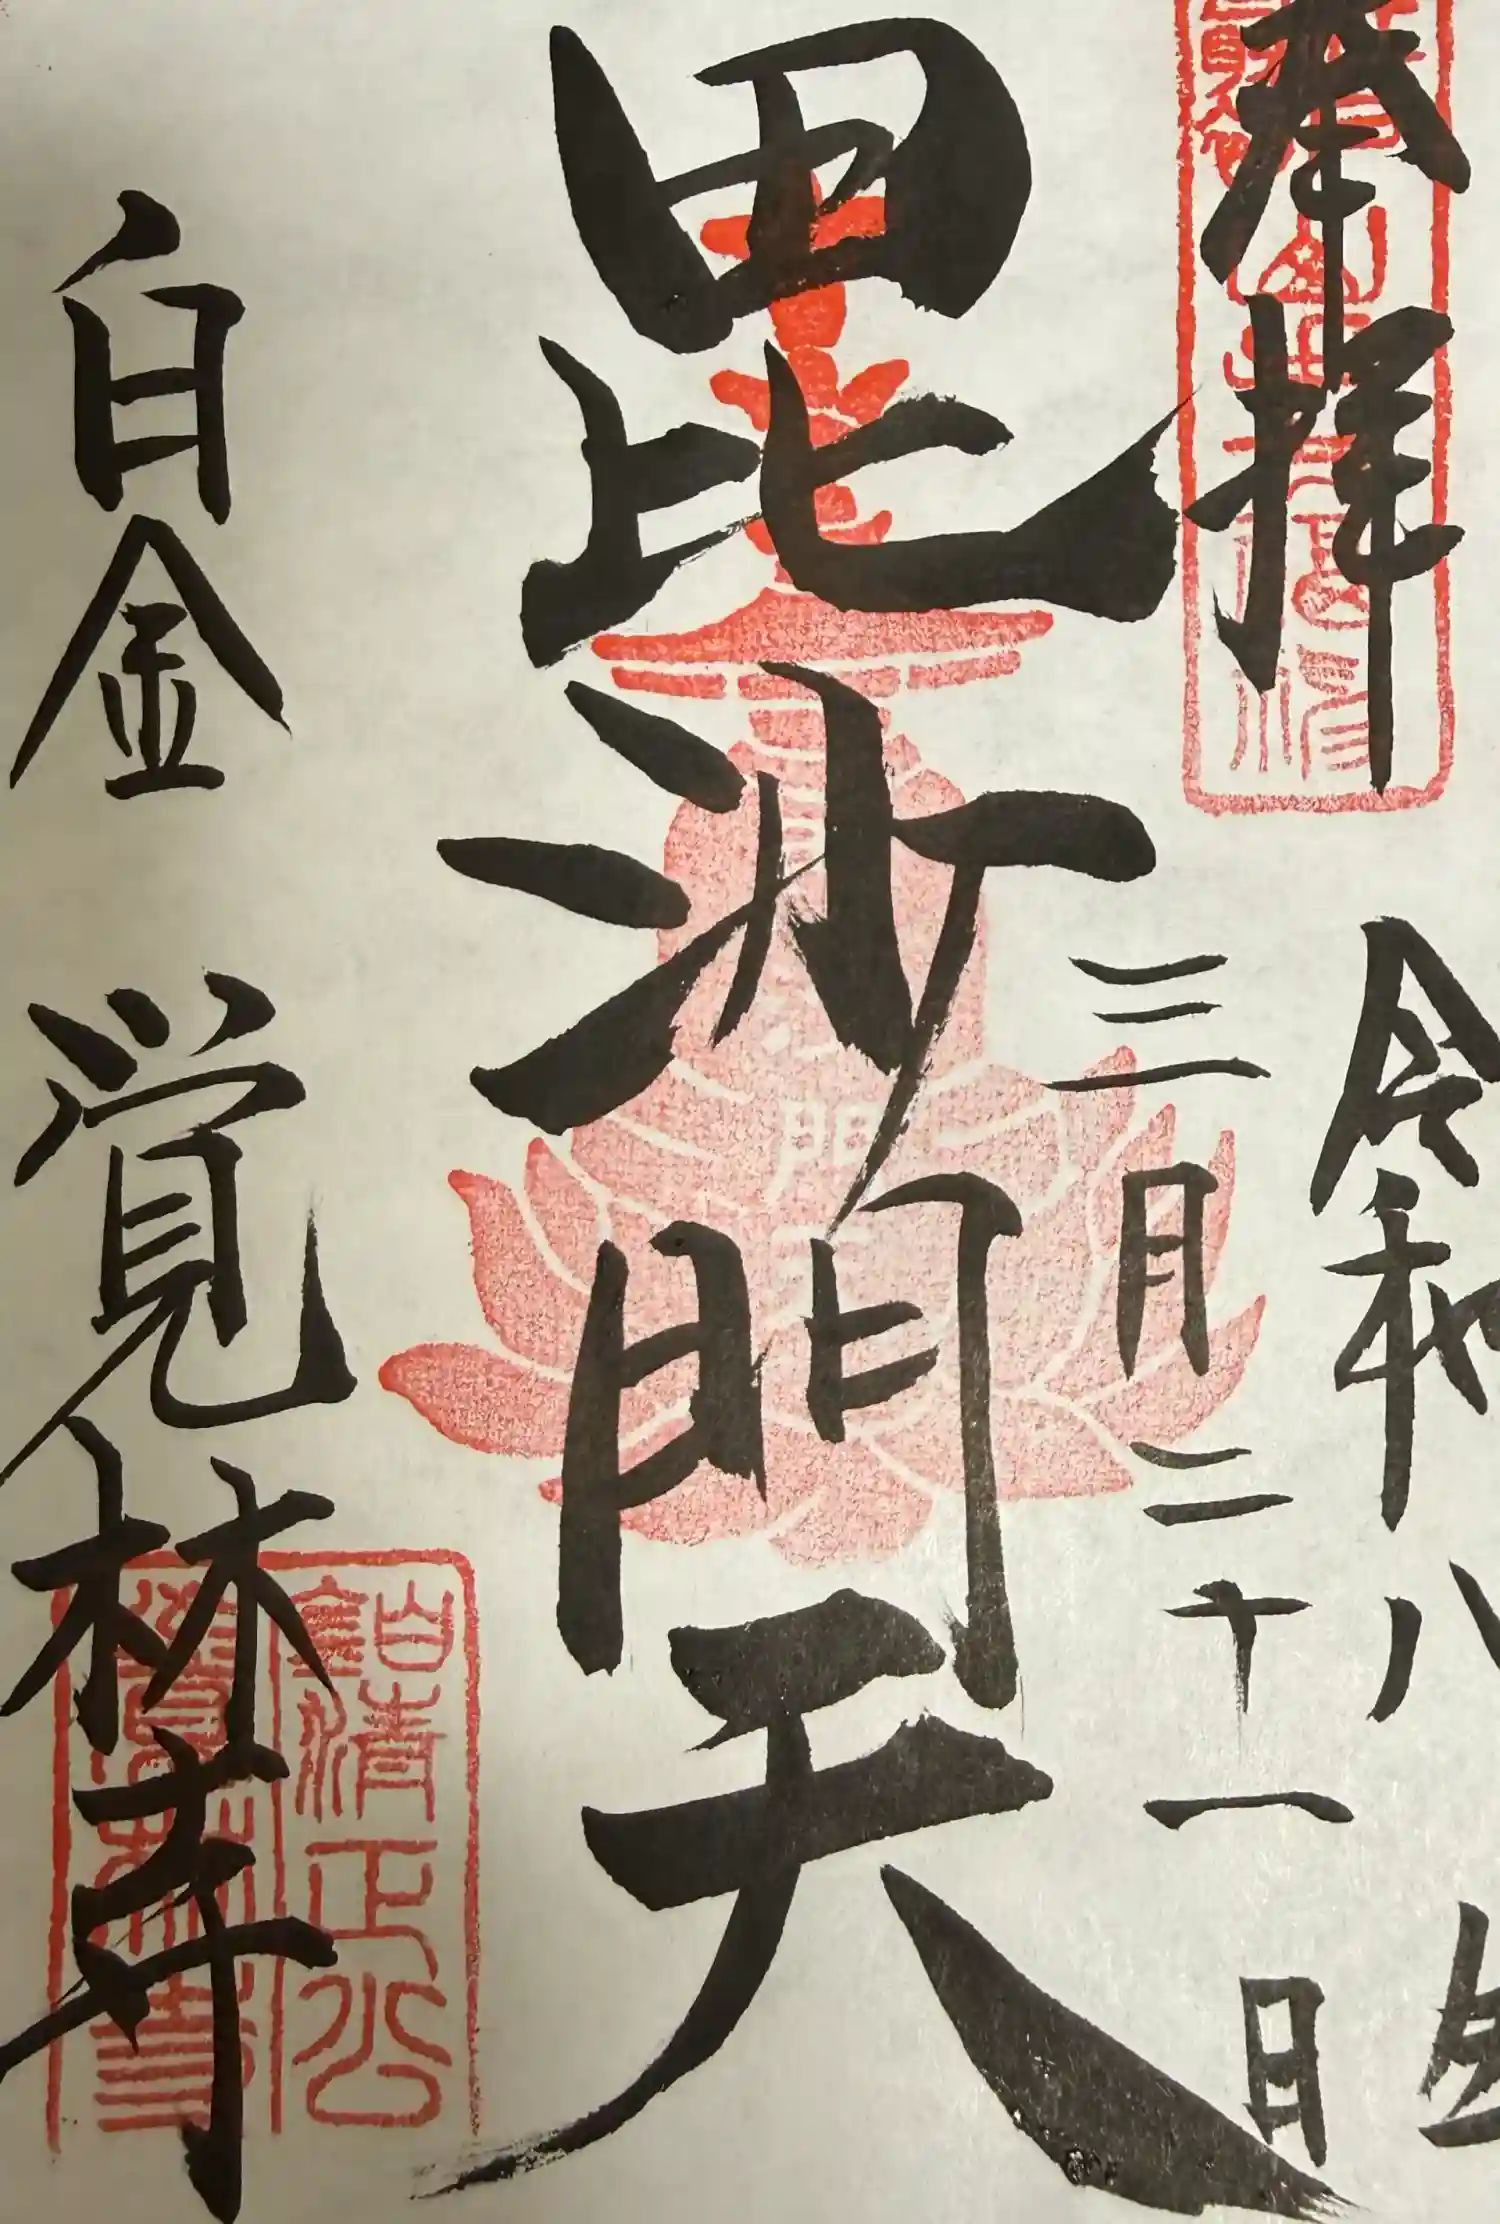 奉拝
令和八年
三月二十一日
毘沙門天
白金 覚林寺
白金清正公
覚林寺